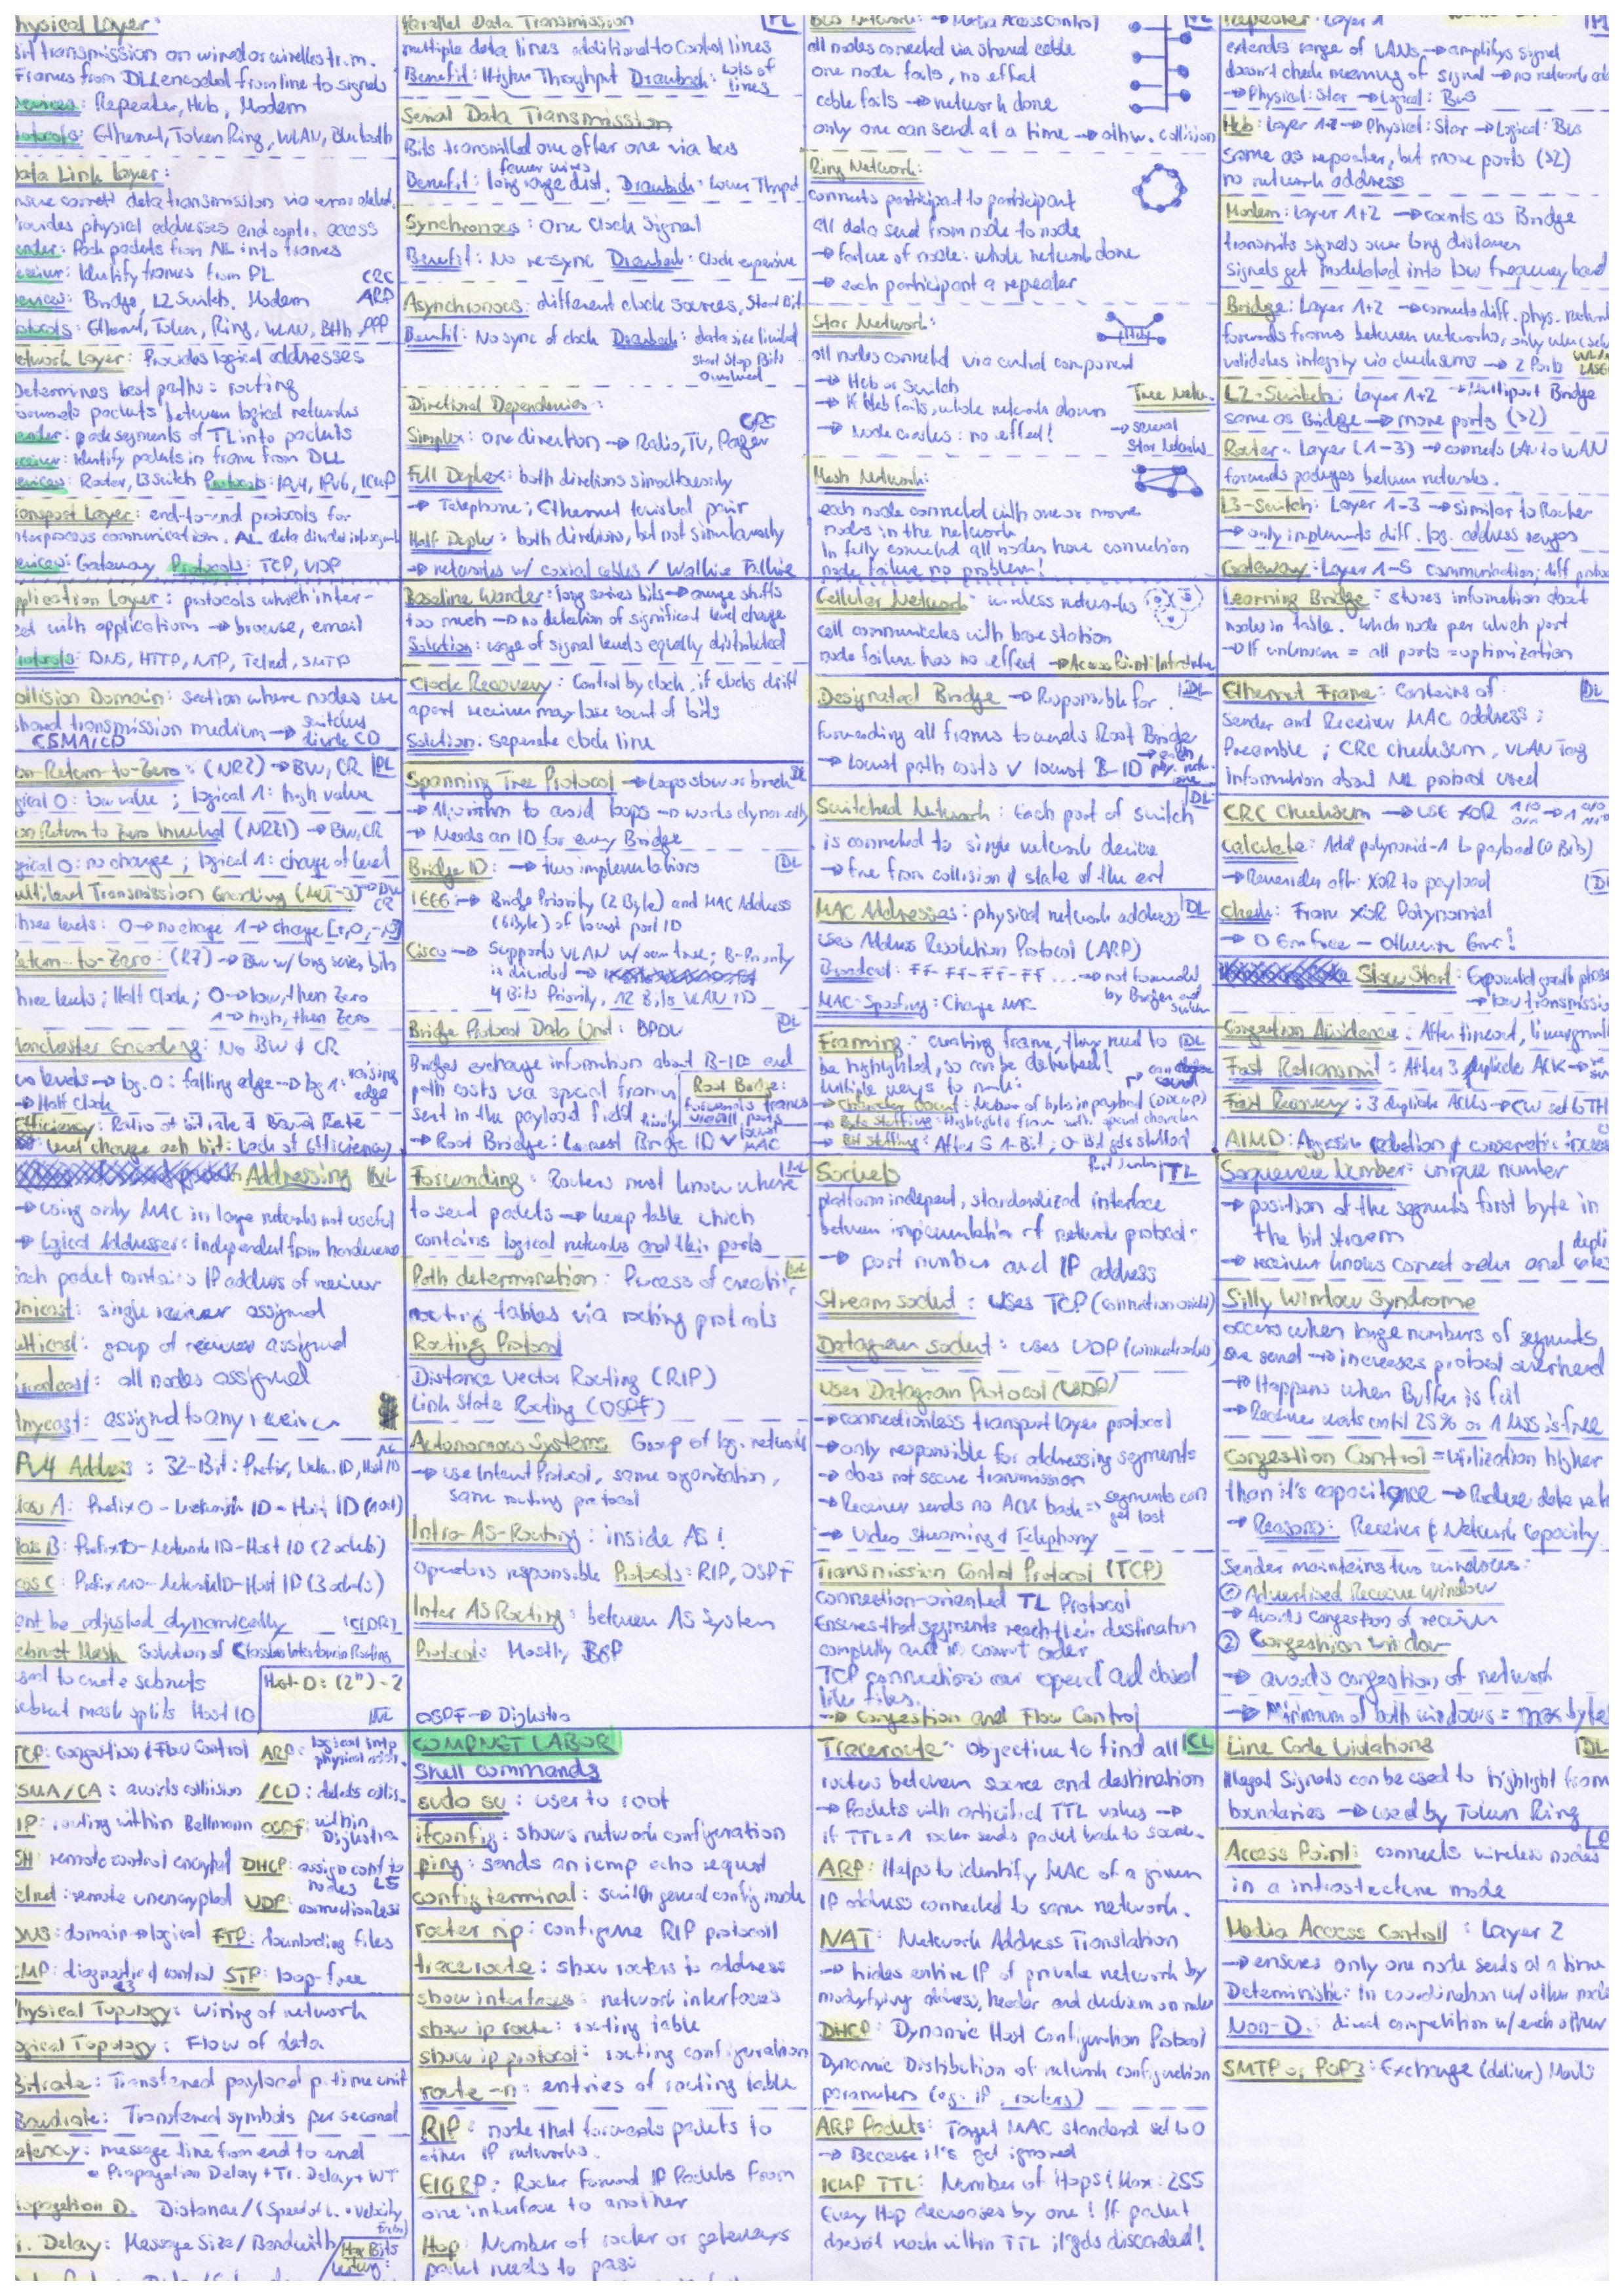 Physical Layer:
Bit transmission on wired or wireless tr. m.
Frames from DLL encoded from line to signals
Devices: Repeater, Hub, Modem
Protocols: Ethernet, Token Ring, WLAN, Bluetooth
Data Link Layer:
ensure correct data transmission via error detect.
Provides physical addresses and contr. access
Sender: Pack packets from NL into frames
Receiver: Identify frames from PL
CRC
Devices: Bridge, L2 Switch, Modem ARP
Protocols: Ethernet, Token, Ring, WLAN, Blth, PPP
Network Layer: Provides logical addresses
Determines best paths = routing
Forwards packets between logical networks
Sender: pack segments of TL into packets
Receiver: Identify packets in frame from DLL
Devices: Router, L3 Switch Protocols: IPv4, IPv6, ICMP
Transport Layer: end-to-end protocols for
interprocess communication. AL data divided into segments
Devices: Gateway Protocols: TCP, UDP
Application Layer: protocols which inter-
act with applications → browse, email
Protocols: DNS, HTTP, NTP, Telnet, SMTP
Collision Domain: section where nodes use
shared transmission medium → switches divide CD
CSMA/CD
Non-Return-to-Zero: (NRZ) → BW, CR PL
logical 0: low value ; logical 1: high value
Non Return to Zero Inverted (NRZI) → BW, CR
logical 0: no change ; logical 1: change of level
Multilevel Transmission Encoding (MLT-3) → BW CR
Three levels: 0 → no change 1 → change [+,0,-,0]
Return-to-Zero: (RZ) → BW w/ long series bits
Three levels; Half Clock; 0 → low, then Zero
1 → high, then Zero
Manchester Encoding: No BW & CR
two levels → log. 0: falling edge → log 1: raising edge
→ Half Clock
Efficiency: Ratio of bit rate & Baud Rate
level change each bit: Lack of Efficiency
Addressing NL
→ using only MAC in large networks not useful
→ Logical Addresses: Independent from hardware
Each packet contains IP address of receiver
Unicast: single receiver assigned
Multicast: group of receivers assigned
Broadcast: all nodes assigned
Anycast: assigned to any receiver
NL
IPv4 Address: 32-Bit: Prefix, Netw. ID, Host ID
Class A: Prefix 0 - Network ID - Host ID (1 oct)
Class B: Prefix 10 - Network ID - Host ID (2 octets)
Class C: Prefix 110 - Network ID - Host ID (3 octets)
can't be adjusted dynamically (CIDR)
Subnet Mask Solution of Classless Interdomain Routing
used to create subnets
Host-ID: (2ⁿ)-2
subnet mask splits Host ID
NL
TCP: Congestion & Flow Control ARP: logical into physical addr.
CSMA/CA: avoids collision /CD: detects collis.
RIP: routing within Bellmann OSPF: within Dijkstra
SSH: remote control encrypted DHCP: assign conf to nodes L5
Telnet: remote unencrypted UDP: connectionless
DNS: domain → logical FTP: downloading files
ICMP: diagnostic & control STP: loop-free
L3
Physical Topology: wiring of network
Logical Topology: Flow of data
Bitrate: Transferred payload p. time unit
Baudrate: Transferred symbols per second
Latency: message time from end to end
• Propagation Delay + Tr. Delay + WT
Propagation D. Distance/(Speed of L. • Velocity factor)
Tr. Delay: Message Size/Bandwidth
Parallel Data Transmission PL
multiple data lines additional to Control lines
Benefit: Higher Throughput Drawback: Lots of lines
Serial Data Transmission
Bits transmitted one after one via bus
fewer wires
Benefit: long range dist. Drawback: Lower Thrpt
Synchronous: One Clock Signal
Benefit: No re-sync Drawback: Clock expensive
Asynchronous: different clock sources, Start Bit
Benefit: No sync of clock Drawback: data size limited
Start Stop Bits
Overhead
Directional Dependencies:
GPS
Simplex: one direction → Radio, TV, Pager
Full Duplex: both directions simultaneously
→ Telephone; Ethernet twisted pair
Half Duplex: both directions, but not simultaneously
→ networks w/ coxial cables / Walkie Talkie
Baseline Wander: long series bits → average shifts
too much → no detection of significant level change
Solution: usage of signal levels equally distributed
Clock Recovery: Control by clock, if clocks drift
apart receiver may lose count of bits
Solution: seperate clock line
Spanning Tree Protocol → Loops slow or break DL
→ Algorithm to avoid loops → works dynamically
→ Needs an ID for every Bridge
Bridge ID: → two implementations DL
IEEE → Bridge Priority (2 Byte) and MAC Address
(6 Byte) of lowest port ID
Cisco → Supports VLAN w/ own tree; B-Priority
is divided →
4 Bits Priority, 12 Bits VLAN ID
Bridge Protocol Data Unit: BPDU DL
Bridges exchange information about B-IDs and
path costs via special frames
sent in the payload field
Root Bridge:
forwards frames
→ Root Bridge: Lowest Bridge ID v lowest MAC
Forwarding: Routers must know where NL
to send packets → keep table which
contains logical networks and their ports
Path determination: Process of creating NL
routing tables via routing protocols
Routing Protocol
Distance Vector Routing (RIP)
Link State Routing (OSPF)
Autonomous Systems Group of log. networks
→ use Internet Protocol, same organization,
same routing protocol
Intra-AS-Routing: inside AS!
Operators responsible Protocols: RIP, OSPF
Inter AS Routing: between AS System
Protocols Mostly BGP
OSPF → Dijkstra
COMPNET LABOR
Shell commands
sudo su: user to root
ifconfig: shows network configuration
ping: sends an icmp echo request
config terminal: switch general config mode
router rip: configure RIP protocoll
traceroute: show routers to address
show interfaces: network interfaces
show ip route: routing table
show ip protocol: routing configuration
route -n: entries of routing table
RIP: node that forwards packets to
other IP networks.
EIGRP: Router forward IP Packets from
one interface to another
Hop: Number of router or gateways
packet needs to pass
Bus Network: → Media Access Control PL
all nodes connected via shared cable
one node fails, no effect
cable fails → network done
only one can send at a time → othw. collision
Ring Network:
connects participant to participant
all data send from node to node
→ failure of node: whole network done
→ each participant a repeater
Star Network:
Hub
all nodes connected via central component
→ Hub or Switch
→ If Hub fails, whole network down
→ Node crashes: no effect!
Tree Netw.
→ several
Star Networks
Mesh Network:
each node connected with one or more
nodes in the network
In fully connected all nodes have connection
node failure no problem!
Cellular Network: wireless networks
cell communicates with base station
node failure has no effect → Access Point: Infrastructure
Designated Bridge → Responsible for DL
forwarding all frames towards Root Bridge
→ lowest path costs v lowest B-ID
Switched Network: Each port of switch DL
is connected to single network device
→ free from collision & state of the art
MAC Addresses: physical network address DL
uses Address Resolution Protocol (ARP)
Broadcast: FF-FF-FF-FF... → not forwarded
by Bridges and switch
MAC-Spoofing: Change MAC
Framing: creating frame, they need to DL
be highlighted, so can be detected!
Multiple ways to mark:
→ Character Count: Number of bytes in payload
→ Byte stuffing: Highlights frame with special character
→ Bit stuffing: After 5 1-Bit, 0-Bit gets stuffed
Sockets TL
platform independ, standardized interface
between implementation of network protocol
→ port number and IP address
Stream socket: uses TCP (connection oriented)
Datagram socket: uses UDP (connectionless)
User Datagram Protocol (UDP)
→ connectionless transport layer protocol
→ only responsible for addressing segments
→ does not secure transmission
→ Receiver sends no ACK back => segments can get lost
→ Video Streaming & Telephony
Transmission Control Protocol (TCP)
connection-oriented TL Protocol
Ensures that segments reach their destination
completly and in correct order
TCP connections are opened and closed
like files.
→ Congestion and Flow Control
Traceroute: Objective to find all CL
routers between source and destination
→ Packets with artificial TTL values →
if TTL=1 router sends packet back to source.
ARP: Helps to identify MAC of a given
IP address connected to same network.
NAT: Network Address Translation
→ hides entire IP of private network by
modyfying address, header and decision on router
DHCP: Dynamic Host Configuration Protocol
Dynamic Distribution of network configuration
parameters (eg. IP, routers)
ARP Packets: Target MAC standard set to 0
→ Because it's get ignored
ICMP TTL: Number of Hops! Max: 255
Every Hop decreases by one! If packet
doesn't reach within TTL, it gets discarded!
Repeater: Layer 1 PL
extends range of LANs → amplifys signal
doesn't check meaning of signal → no network address
→ Physical: Star → Logical: Bus
Hub: Layer 1 → Physical: Star → Logical: Bus
Same as repeater, but more ports (>2)
no network address
Modem: Layer 1+2 → counts as Bridge
transmits signals over long distances
signals get modulated into low frequency band
Bridge: Layer 1+2 → connects diff. phys. network
forwards frames between networks, only
validates integrity via checksums → 2 Ports WLAN LASER
L2-Switch: Layer 1+2 → Multiport Bridge
same as Bridge → more ports (>2)
Router: Layer (1-3) → connects LAN to WAN
forwards packages between networks.
L3-Switch: Layer 1-3 → similar to Router
→ only implements diff. log. address ranges
Gateway: Layer 1-5 communication; diff protocols
Learning Bridge: stores information about
nodes in table. which node per which port
→ If unknown = all ports = optimization
Ethernet Frame: Contains of DL
sender and Receiver MAC address;
Preamble ; CRC checksum, VLAN Tag
information about NL protocol used
CRC Checksum → USE XOR
Calculate: Add polynomial-1 to payload (0 Bits)
→ Remainder after XOR to payload DL
Check: Frame XOR Polynomial
→ 0 Error free - Otherwise Error!
Slow Start: Exponential growth phase
→ low transmission
Congestion Avoidance: After timeout, linear growth
Fast Retransmit: After 3 duplicate ACK →
Fast Recovery: 3 duplicate ACKs → CW set to TH
AIMD: Aggressive reduction & conservative increase
Sequence Number: unique number
→ position of the segments first byte in
the bit stream
→ receiver knows correct order and duplicates
Silly Window Syndrome
occurs when large numbers of segments
are send → increases protocol overhead
→ Happens when Buffer is full
→ Receiver waits until 25% or 1 MSS is free
Congestion Control = utilization higher
than it's capacity → Reduce data rate
→ Reasons: Receiver & Network Capacity
Sender maintains two windows:
① Advertised Receive Window
→ Avoids congestion of receiver
② Congestion window
→ avoids congestion of network
→ Minimum of both windows = max bytes
Line Code Violations DL
Illegal Signals can be used to highlight frame
boundaries → used by Token Ring
Access Point: connects wireless nodes
in a infrastructure mode
Media Access Controll: Layer 2
→ ensures only one node sends at a time
Deterministic: In coordination w/ other nodes
Non-D.: direct competition w/ each other
SMTP or POP3: Exchange (deliver) Mails